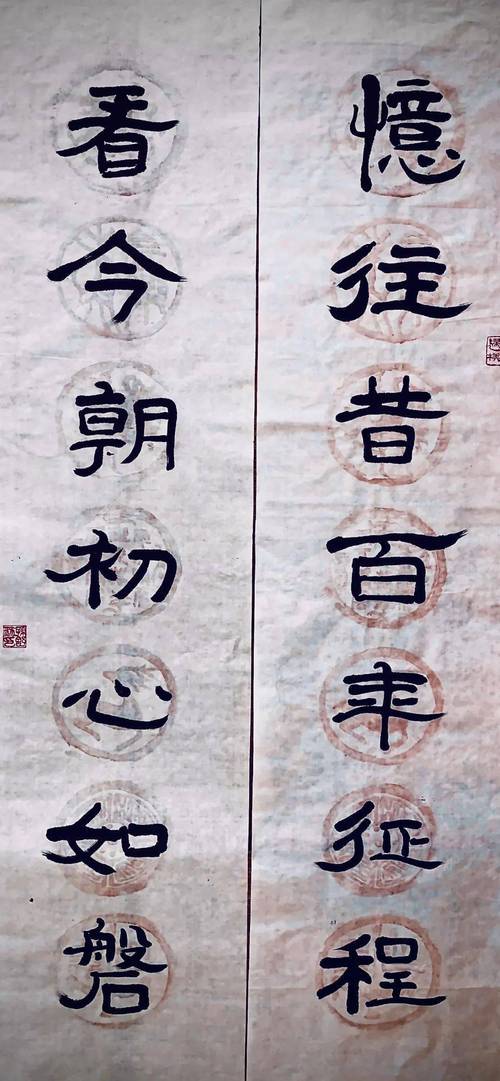 憶往昔百年征程
看今朝初心如磐